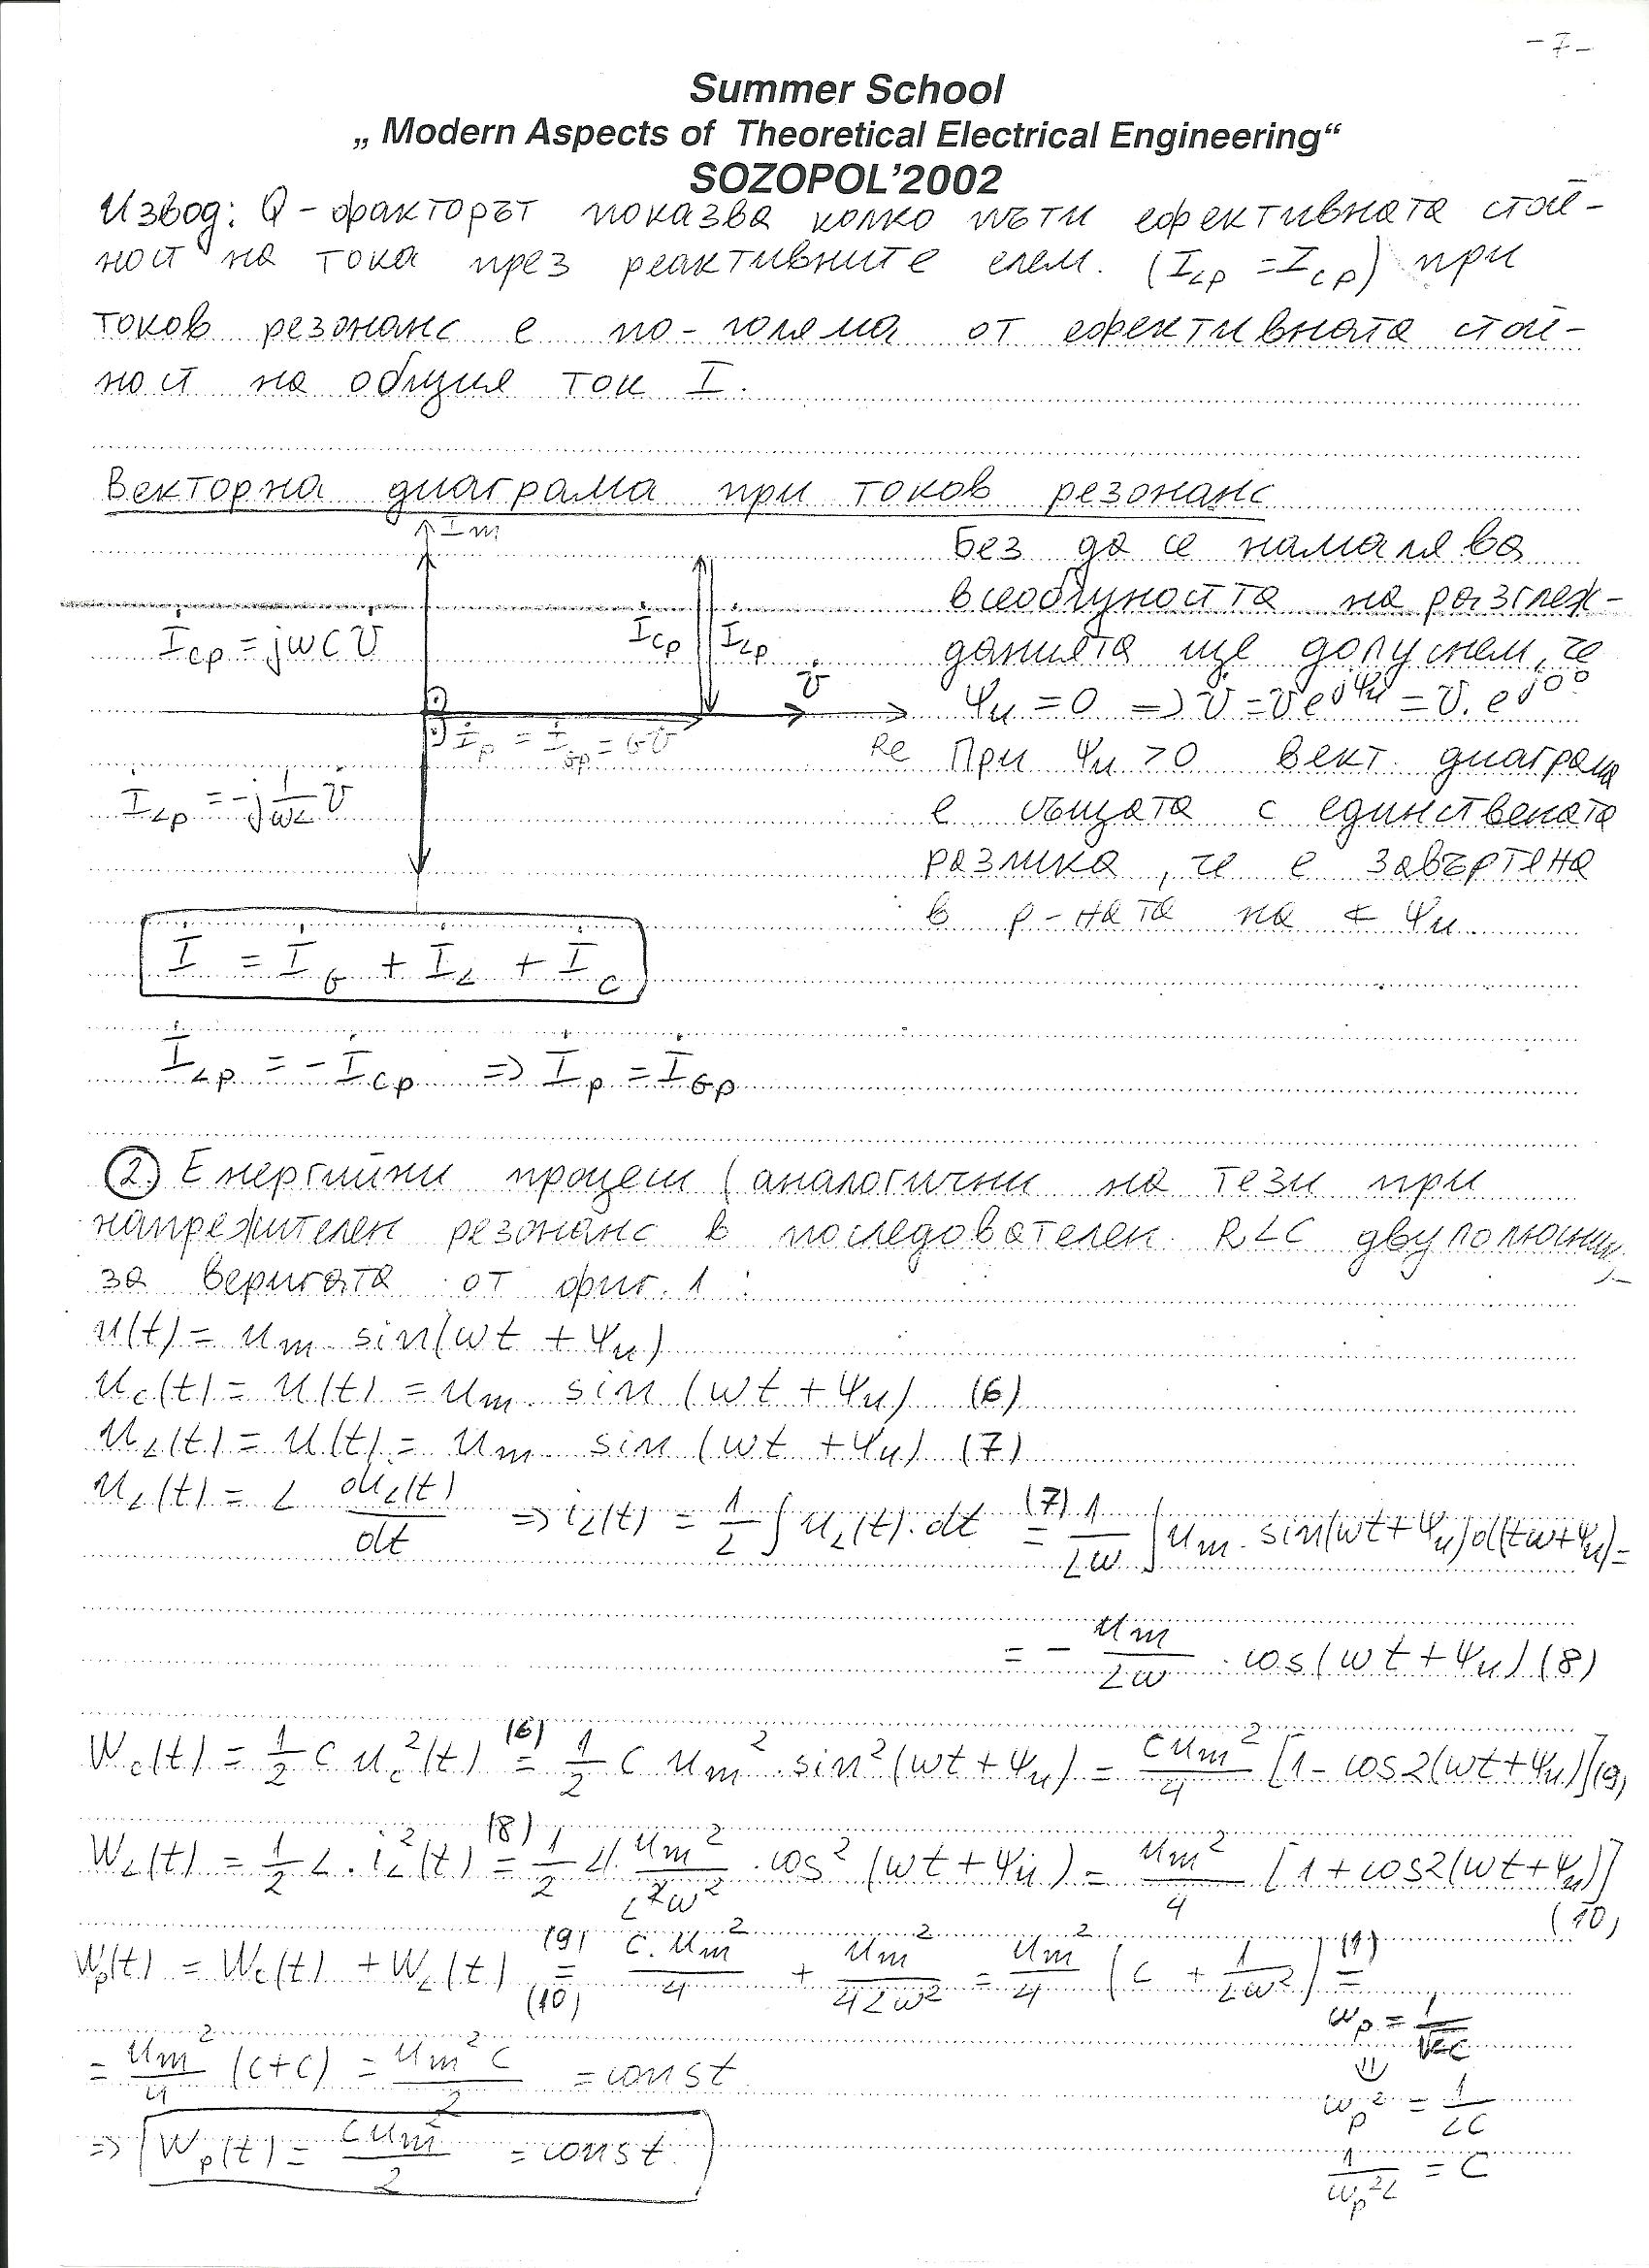 - 7 -
Summer School
„ Modern Aspects of Theoretical Electrical Engineering“
SOZOPOL’2002
Извод: Q - факторът показва колко пъти ефективната стой-
ност на тока през реактивните елем. (I_Lp = I_Cp) при
токов резонанс е по-голяма от ефективната стой-
ност на общия ток I.
Векторна диаграма при токов резонанс
Im
İ_Cp = jωC U̇
İ_Cp İ_Lp
U̇
İ_p = İ_Gp = GU̇
Re
İ_Lp = -j 1/ωL U̇
Без да се намалява
всеобщността на разглеж-
данията ще допуснем, че
Ψu = 0 => U̇ = U e^jΨu = U. e^j0°
При Ψu > 0 вект. диаграма
е същата с единствената
разлика, че е завъртена
в р-ната на ∢ Ψu.
İ = İ_G + İ_L + İ_C
İ_Lp = - İ_Cp => İ_p = İ_Gp
2. Енергийни процеси (аналогични на тези при
напрежителен резонанс в последователен RLC двуполюсник
за веригата от фиг. 1 :
u(t) = um sin(ωt + Ψu)
uc(t) = u(t) = um. sin (ωt + Ψu) (6)
uL(t) = u(t) = um sin (ωt + Ψu) (7)
uL(t) = L diL(t)/dt => iL(t) = 1/L ∫ uL(t).dt (7)= 1/Lω ∫ um. sin(ωt+Ψu)d(tω+Ψu) =
= - um/Lω . cos(ωt + Ψu) (8)
Wc(t) = 1/2 C uc²(t) (6)= 1/2 C um². sin²(ωt + Ψu) = Cum²/4 [1 - cos2(ωt+Ψu)] (9)
WL(t) = 1/2 L. iL²(t) (8)= 1/2 L. um²/L²ω² . cos² (ωt + Ψu) = um²/4 [1 + cos2(ωt+Ψu)]
(10)
Wp(t) = Wc(t) + WL(t) (9)=(10) C. um²/4 + um²/4Lω² = um²/4 (C + 1/Lω²) (1)=
ωp = 1/√LC
= um²/4 (C+C) = um²C/2 = const
⇓
ωp² = 1/LC
=> Wp(t) = Cum²/2 = const.
1/ωp²L = C